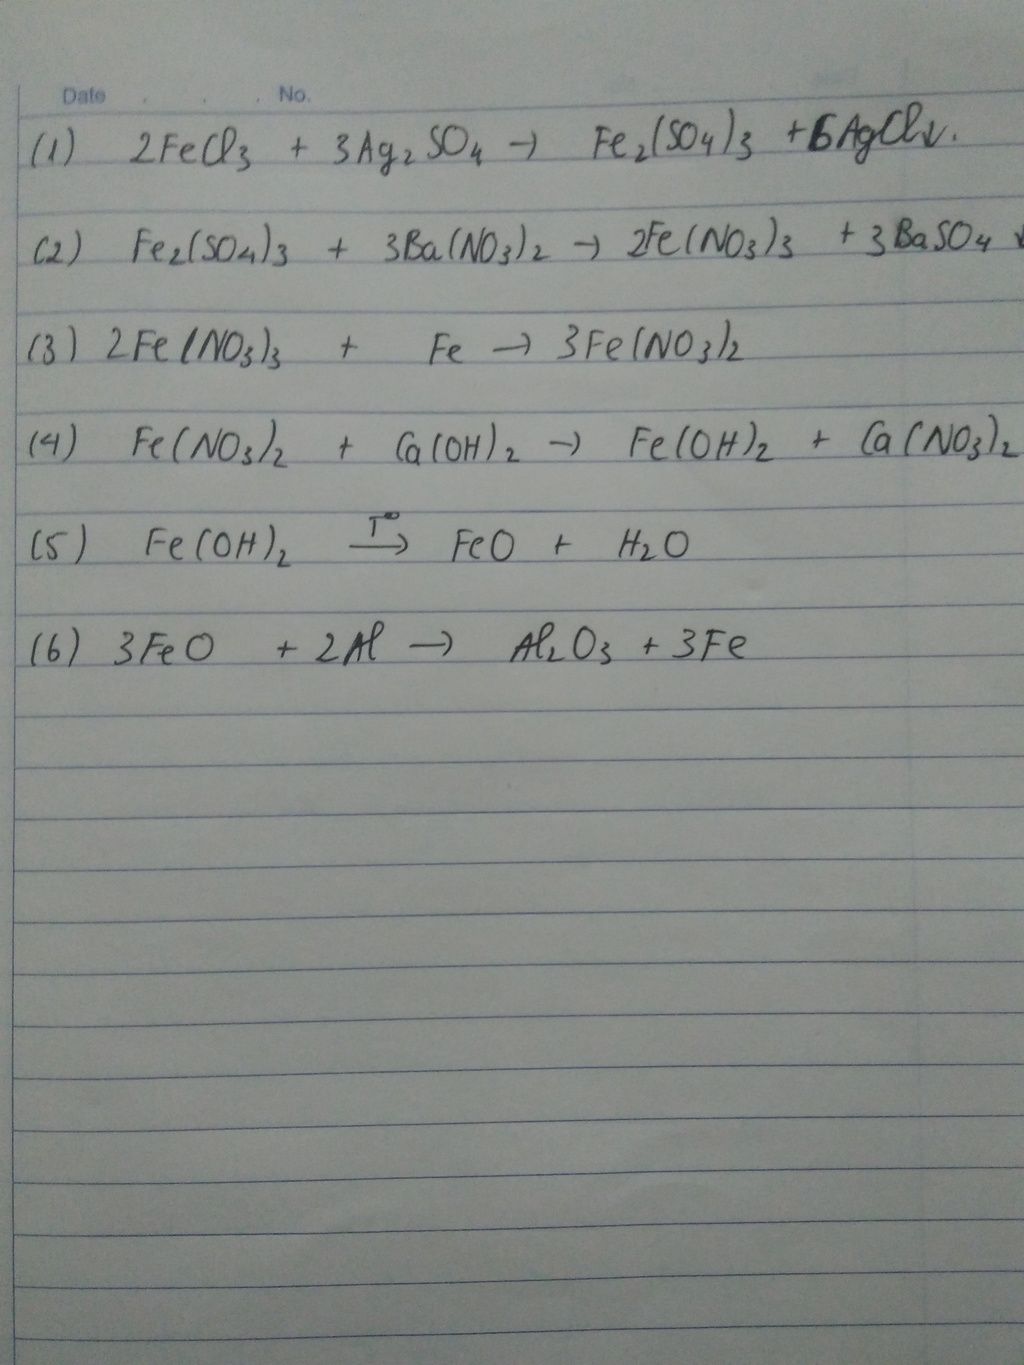 Date . . . No.
(1) 2FeCl₃ + 3Ag₂SO₄ → Fe₂(SO₄)₃ + 6AgCl↓.
(2) Fe₂(SO₄)₃ + 3Ba(NO₃)₂ → 2Fe(NO₃)₃ + 3BaSO₄ ↓
(3) 2Fe(NO₃)₃ + Fe → 3Fe(NO₃)₂
(4) Fe(NO₃)₂ + Ca(OH)₂ → Fe(OH)₂ + Ca(NO₃)₂
(5) Fe(OH)₂ T° → FeO + H₂O
(6) 3FeO + 2Al → Al₂O₃ + 3Fe